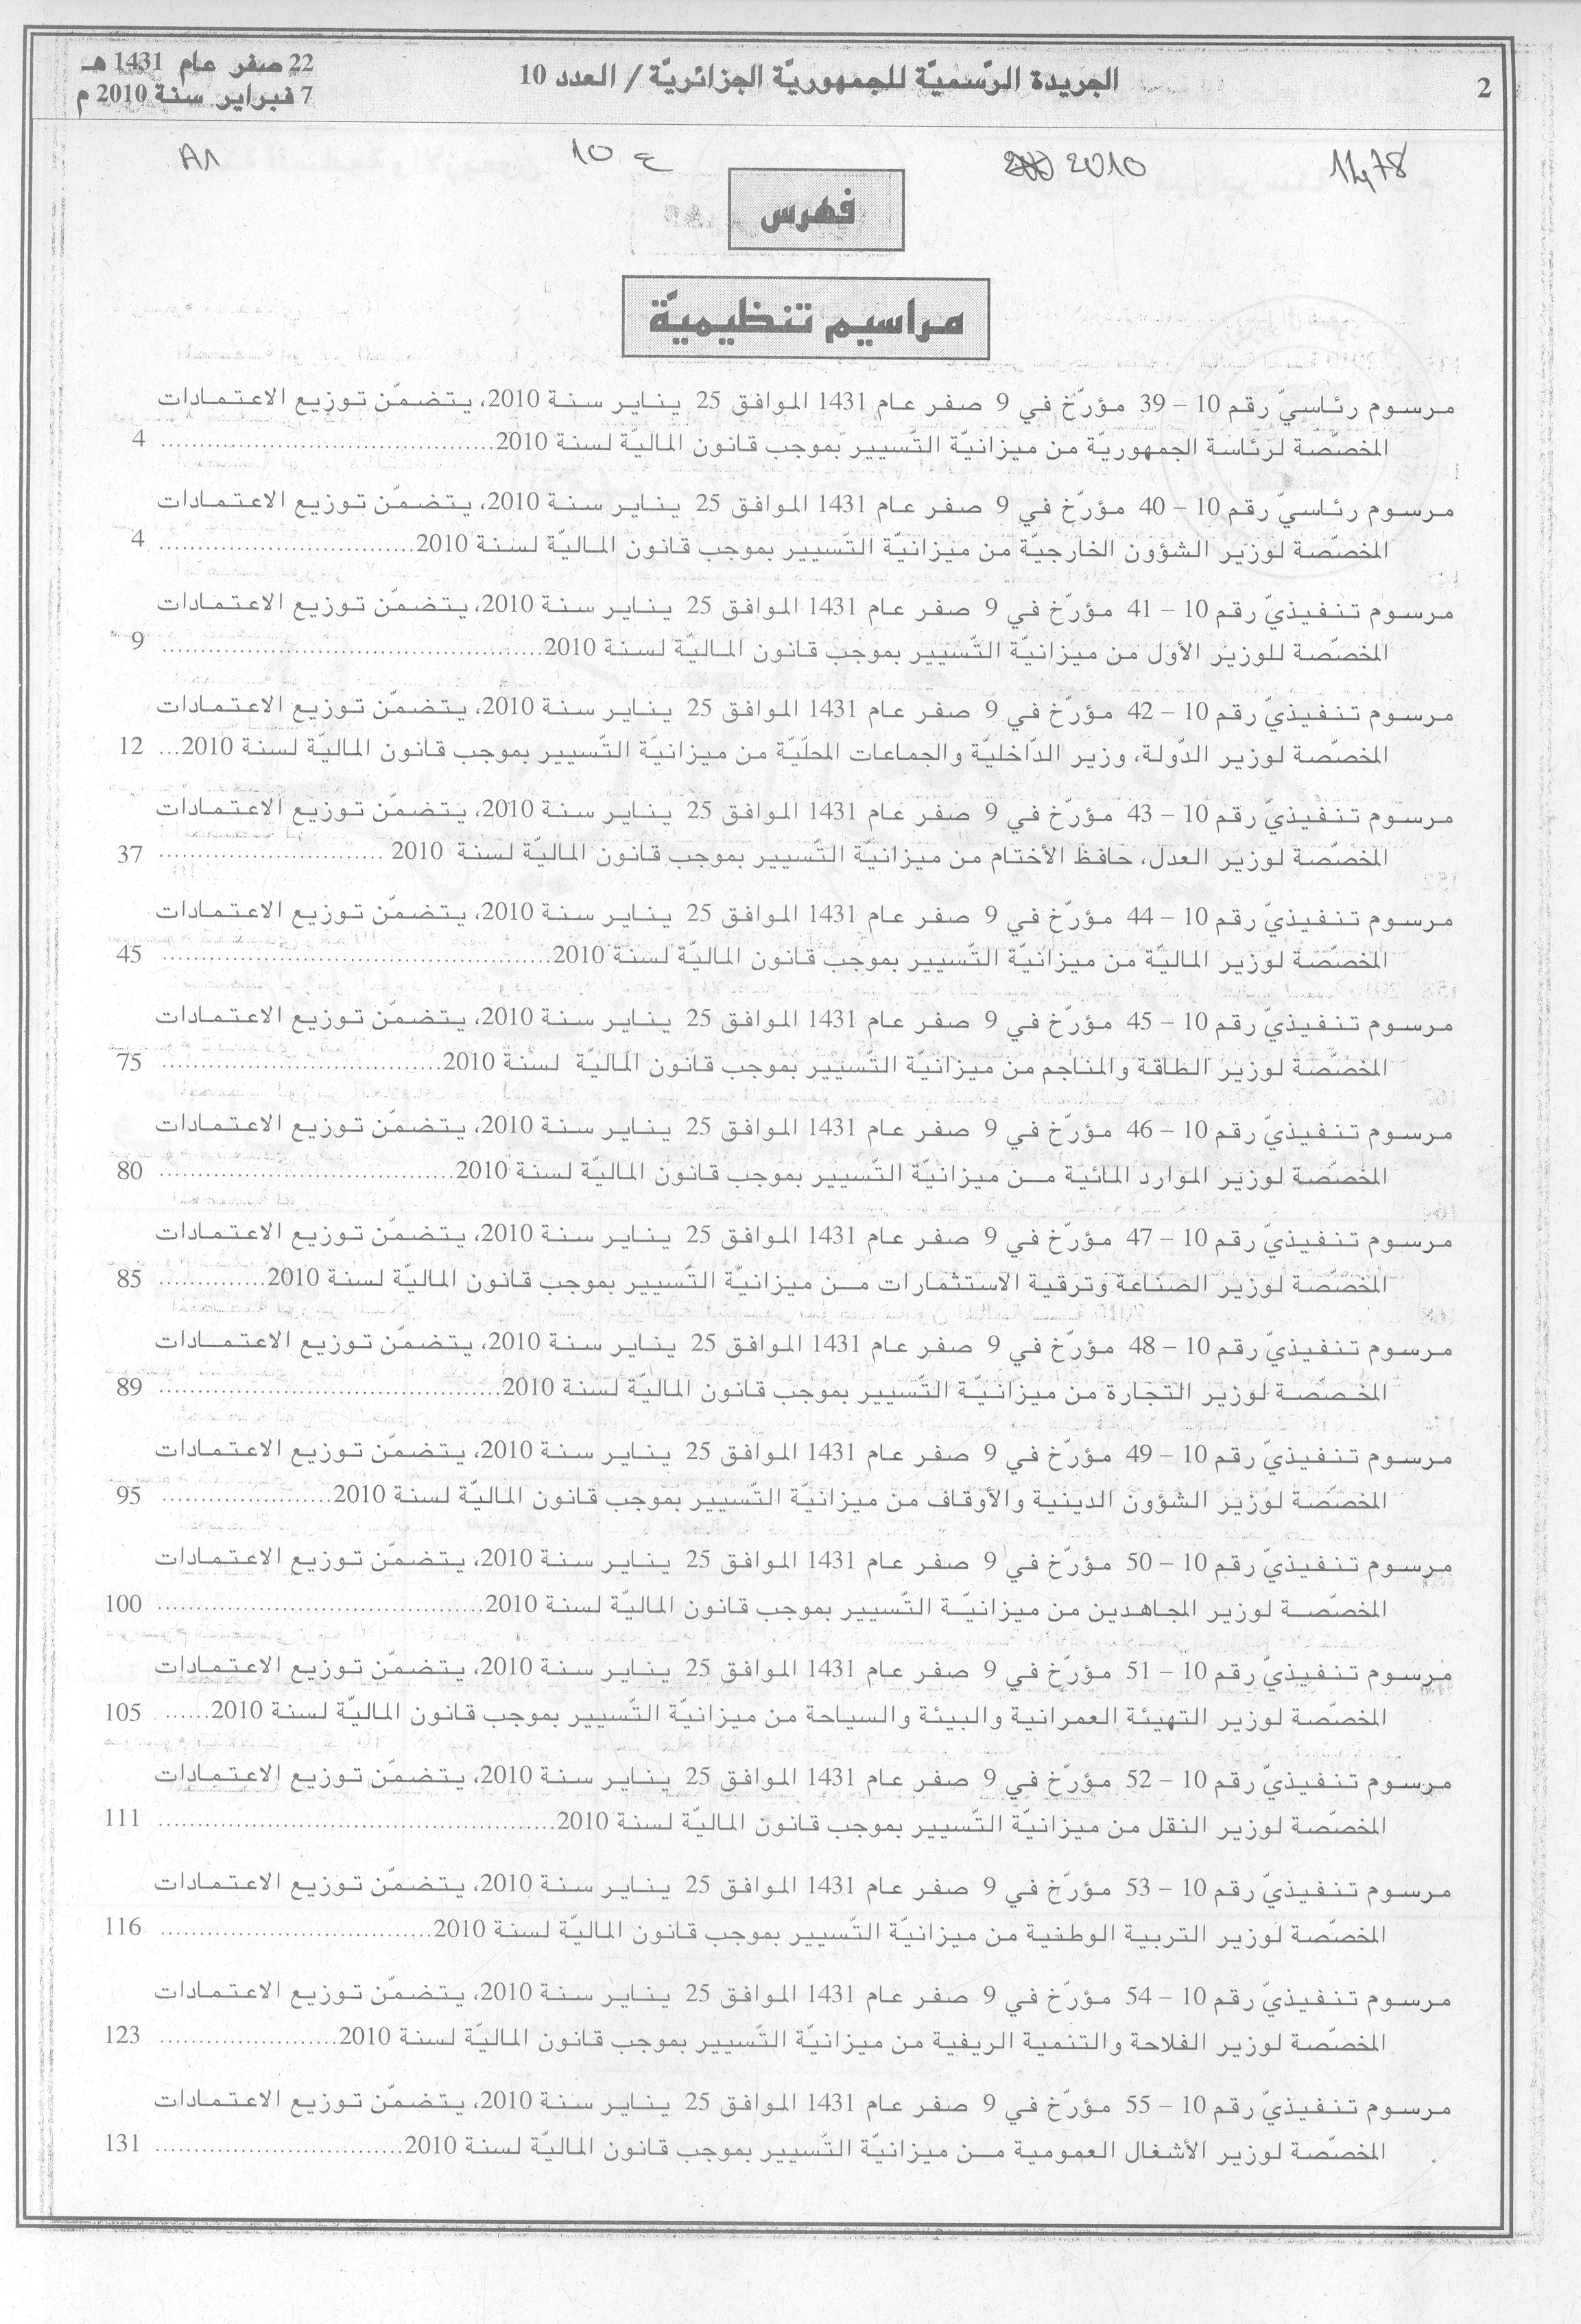 2
الجريدة الرّسميّة للجمهوريّة الجزائريّة / العدد 10
22 صفر عام 1431 هـ
7 فبراير سنة 2010 م
2010
10 ع
A1
فهرس
مراسيم تنظيميّة
مرسوم رئاسيّ رقم 10 – 39 مؤرّخ في 9 صفر عام 1431 الموافق 25 يناير سنة 2010، يتضمّن توزيع الاعتمادات
المخصّصة لرئاسة الجمهوريّة من ميزانيّة التّسيير بموجب قانون الماليّة لسنة 2010 ........ 4
مرسوم رئاسيّ رقم 10 – 40 مؤرّخ في 9 صفر عام 1431 الموافق 25 يناير سنة 2010، يتضمّن توزيع الاعتمادات
المخصّصة لوزير الشؤون الخارجيّة من ميزانيّة التّسيير بموجب قانون الماليّة لسنة 2010 ........ 4
مرسوم تنفيذيّ رقم 10 – 41 مؤرّخ في 9 صفر عام 1431 الموافق 25 يناير سنة 2010، يتضمّن توزيع الاعتمادات
المخصّصة للوزير الأول من ميزانيّة التّسيير بموجب قانون الماليّة لسنة 2010 ........ 9
مرسوم تنفيذيّ رقم 10 – 42 مؤرّخ في 9 صفر عام 1431 الموافق 25 يناير سنة 2010، يتضمّن توزيع الاعتمادات
المخصّصة لوزير الدّولة، وزير الدّاخليّة والجماعات المحلّيّة من ميزانيّة التّسيير بموجب قانون الماليّة لسنة 2010 ... 12
مرسوم تنفيذيّ رقم 10 – 43 مؤرّخ في 9 صفر عام 1431 الموافق 25 يناير سنة 2010، يتضمّن توزيع الاعتمادات
المخصّصة لوزير العدل، حافظ الأختام من ميزانيّة التّسيير بموجب قانون الماليّة لسنة 2010 ........ 37
مرسوم تنفيذيّ رقم 10 – 44 مؤرّخ في 9 صفر عام 1431 الموافق 25 يناير سنة 2010، يتضمّن توزيع الاعتمادات
المخصّصة لوزير الماليّة من ميزانيّة التّسيير بموجب قانون الماليّة لسنة 2010 ........ 45
مرسوم تنفيذيّ رقم 10 – 45 مؤرّخ في 9 صفر عام 1431 الموافق 25 يناير سنة 2010، يتضمّن توزيع الاعتمادات
المخصّصة لوزير الطاقة والمناجم من ميزانيّة التّسيير بموجب قانون الماليّة لسنة 2010 ........ 75
مرسوم تنفيذيّ رقم 10 – 46 مؤرّخ في 9 صفر عام 1431 الموافق 25 يناير سنة 2010، يتضمّن توزيع الاعتمادات
المخصّصة لوزير الموارد المائية مـــن ميزانيّة التّسيير بموجب قانون الماليّة لسنة 2010 ........ 80
مرسوم تنفيذيّ رقم 10 – 47 مؤرّخ في 9 صفر عام 1431 الموافق 25 يناير سنة 2010، يتضمّن توزيع الاعتمادات
المخصّصة لوزير الصناعة وترقية الاستثمارات مـــن ميزانيّة التّسيير بموجب قانون الماليّة لسنة 2010 ........ 85
مرسوم تنفيذيّ رقم 10 – 48 مؤرّخ في 9 صفر عام 1431 الموافق 25 يناير سنة 2010، يتضمّن توزيع الاعتمـــادات
المخـصّصــة لوزير التجارة من ميزانيّة التّسيير بموجب قانون الماليّة لسنة 2010 ........ 89
مرسوم تنفيذيّ رقم 10 – 49 مؤرّخ في 9 صفر عام 1431 الموافق 25 يناير سنة 2010، يتضمّن توزيع الاعتمادات
المخصّصة لوزير الشؤون الدينية والأوقاف من ميزانيّة التّسيير بموجب قانون الماليّة لسنة 2010 ........ 95
مرسوم تنفيذيّ رقم 10 – 50 مؤرّخ في 9 صفر عام 1431 الموافق 25 يناير سنة 2010، يتضمّن توزيع الاعتمادات
المخصّصــة لوزير المجاهدين من ميزانيّــة التّسيير بموجب قانون الماليّة لسنة 2010 ........ 100
مرسوم تنفيذيّ رقم 10 – 51 مؤرّخ في 9 صفر عام 1431 الموافق 25 يناير سنة 2010، يتضمّن توزيع الاعتمادات
المخصّصة لوزير التهيئة العمرانية والبيئة والسياحة من ميزانيّة التّسيير بموجب قانون الماليّة لسنة 2010 ...... 105
مرسوم تنفيذيّ رقم 10 – 52 مؤرّخ في 9 صفر عام 1431 الموافق 25 يناير سنة 2010، يتضمّن توزيع الاعتمادات
المخصّصة لوزير النقل من ميزانيّة التّسيير بموجب قانون الماليّة لسنة 2010 ........ 111
مرسوم تنفيذيّ رقم 10 – 53 مؤرّخ في 9 صفر عام 1431 الموافق 25 يناير سنة 2010، يتضمّن توزيع الاعتمادات
المخصّصة لوزير التربية الوطنية من ميزانيّة التّسيير بموجب قانون الماليّة لسنة 2010 ........ 116
مرسوم تنفيذيّ رقم 10 – 54 مؤرّخ في 9 صفر عام 1431 الموافق 25 يناير سنة 2010، يتضمّن توزيع الاعتمادات
المخصّصة لوزير الفلاحة والتنمية الريفية من ميزانيّة التّسيير بموجب قانون الماليّة لسنة 2010 ........ 123
مرسوم تنفيذيّ رقم 10 – 55 مؤرّخ في 9 صفر عام 1431 الموافق 25 يناير سنة 2010، يتضمّن توزيع الاعتمادات
المخصّصة لوزير الأشغال العمومية مـــن ميزانيّة التّسيير بموجب قانون الماليّة لسنة 2010 ........ 131